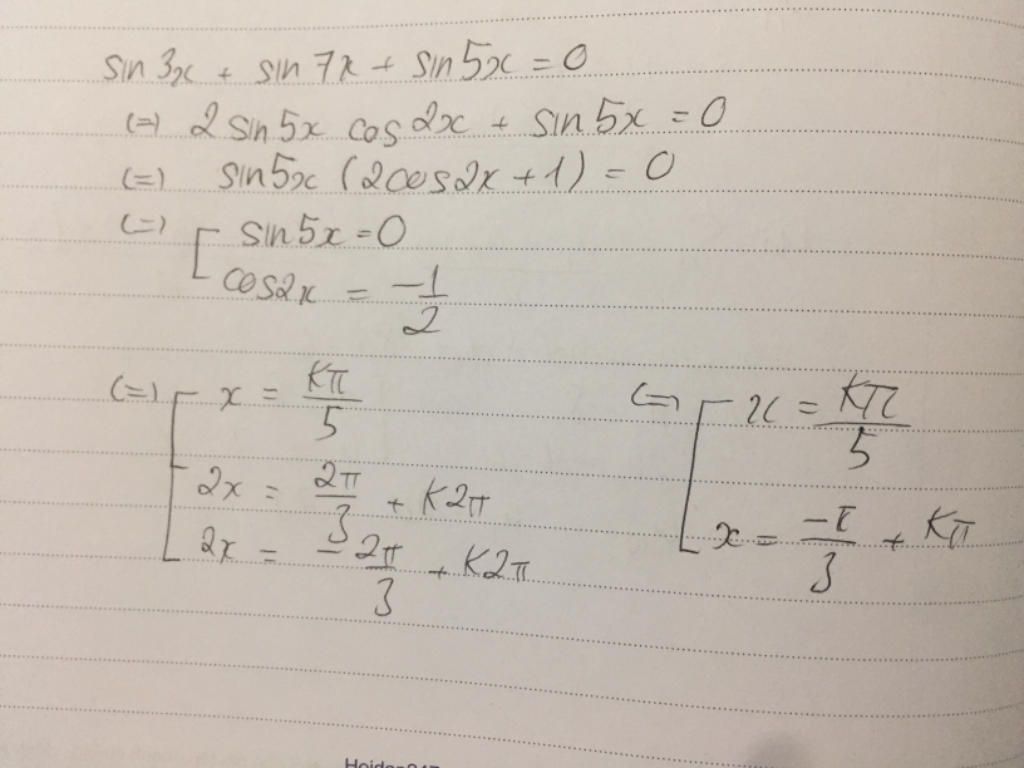 sin 3x + sin 7x + sin 5x = 0
(=) 2 sin 5x cos 2x + sin 5x = 0
(=) sin 5x (2cos2x + 1) = 0
(=) [ sin 5x = 0
cos2x = -1/2
(=) [ x = Kπ/5
2x = 2π/3 + K2π
2x = -2π/3 + K2π
(=) [ x = Kπ/5
x = -π/3 + Kπ